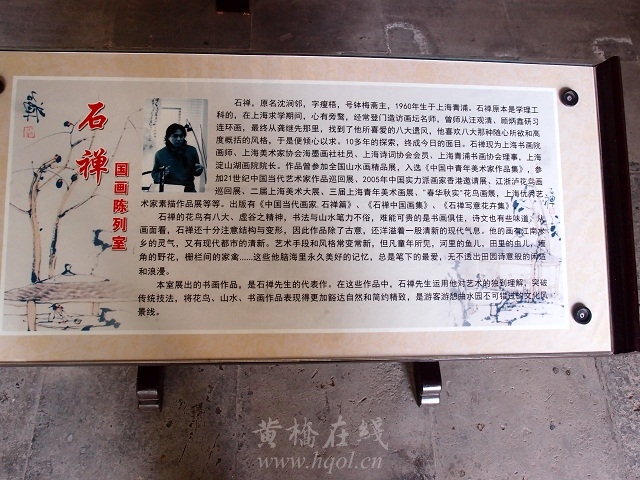 石禅
国画陈列室
石禅，原名沈润邻，字瘦梧，号钵梅斋主，1960年生于上海青浦。石禅原本是学理工
科的，在上海求学期间，心有旁鹜，经常登门造访画坛名师，曾师从汪观清、顾炳鑫研习
连环画，最终从龚继先那里，找到了他所喜爱的八大遗风，他喜欢八大那种随心所欲和高
度概括的风格，于是便倾心以求，10多年的探索，终成今日的面目。石禅现为上海书画院
画师、上海美术家协会海墨画社社员、上海诗词协会会员、上海青浦书画协会理事，上海
淀山湖画院院长。作品曾参加全国山水画精品展，入选《中国中青年美术家作品集》，参
加21世纪中国当代艺术家作品巡回展，2005年中国实力派画家香港邀请展、江浙泸花鸟画
巡回展、二届上海美术大展，三届上海青年美术画展，“春华秋实”花鸟画展，上海优秀艺
术家素描作品展等等。出版有《中国当代画家.石禅篇》、《石禅中国画集》、《石禅写意花卉集》
石禅的花鸟有八大、虚谷之精神，书法与山水笔力不俗，难能可贵的是书画俱佳，诗文也有些味道。从
画面看，石禅还十分注意结构与变形，因此作品除了古意，还洋溢着一股清新的现代气息。他的画有江南水
乡的灵气，又有现代都市的清新。艺术手段和风格常变常新，但凡童年所见，河里的鱼儿，田里的虫儿，墙
角的野花，栅栏间的家禽……这些他脑海里永久美好的记忆，总是笔下的最爱，无不透出田园诗意般的闲适
和浪漫。
本室展出的书画作品，是石禅先生的代表作。在这些作品中，石禅先生运用他对艺术的独到理解，突破
传统技法，将花鸟、山水、书画作品表现得更加豁达自然和简约精致，是游客游憩曲水园不可错过的文化风
景线。
黄橋在线
www.hqol.cn